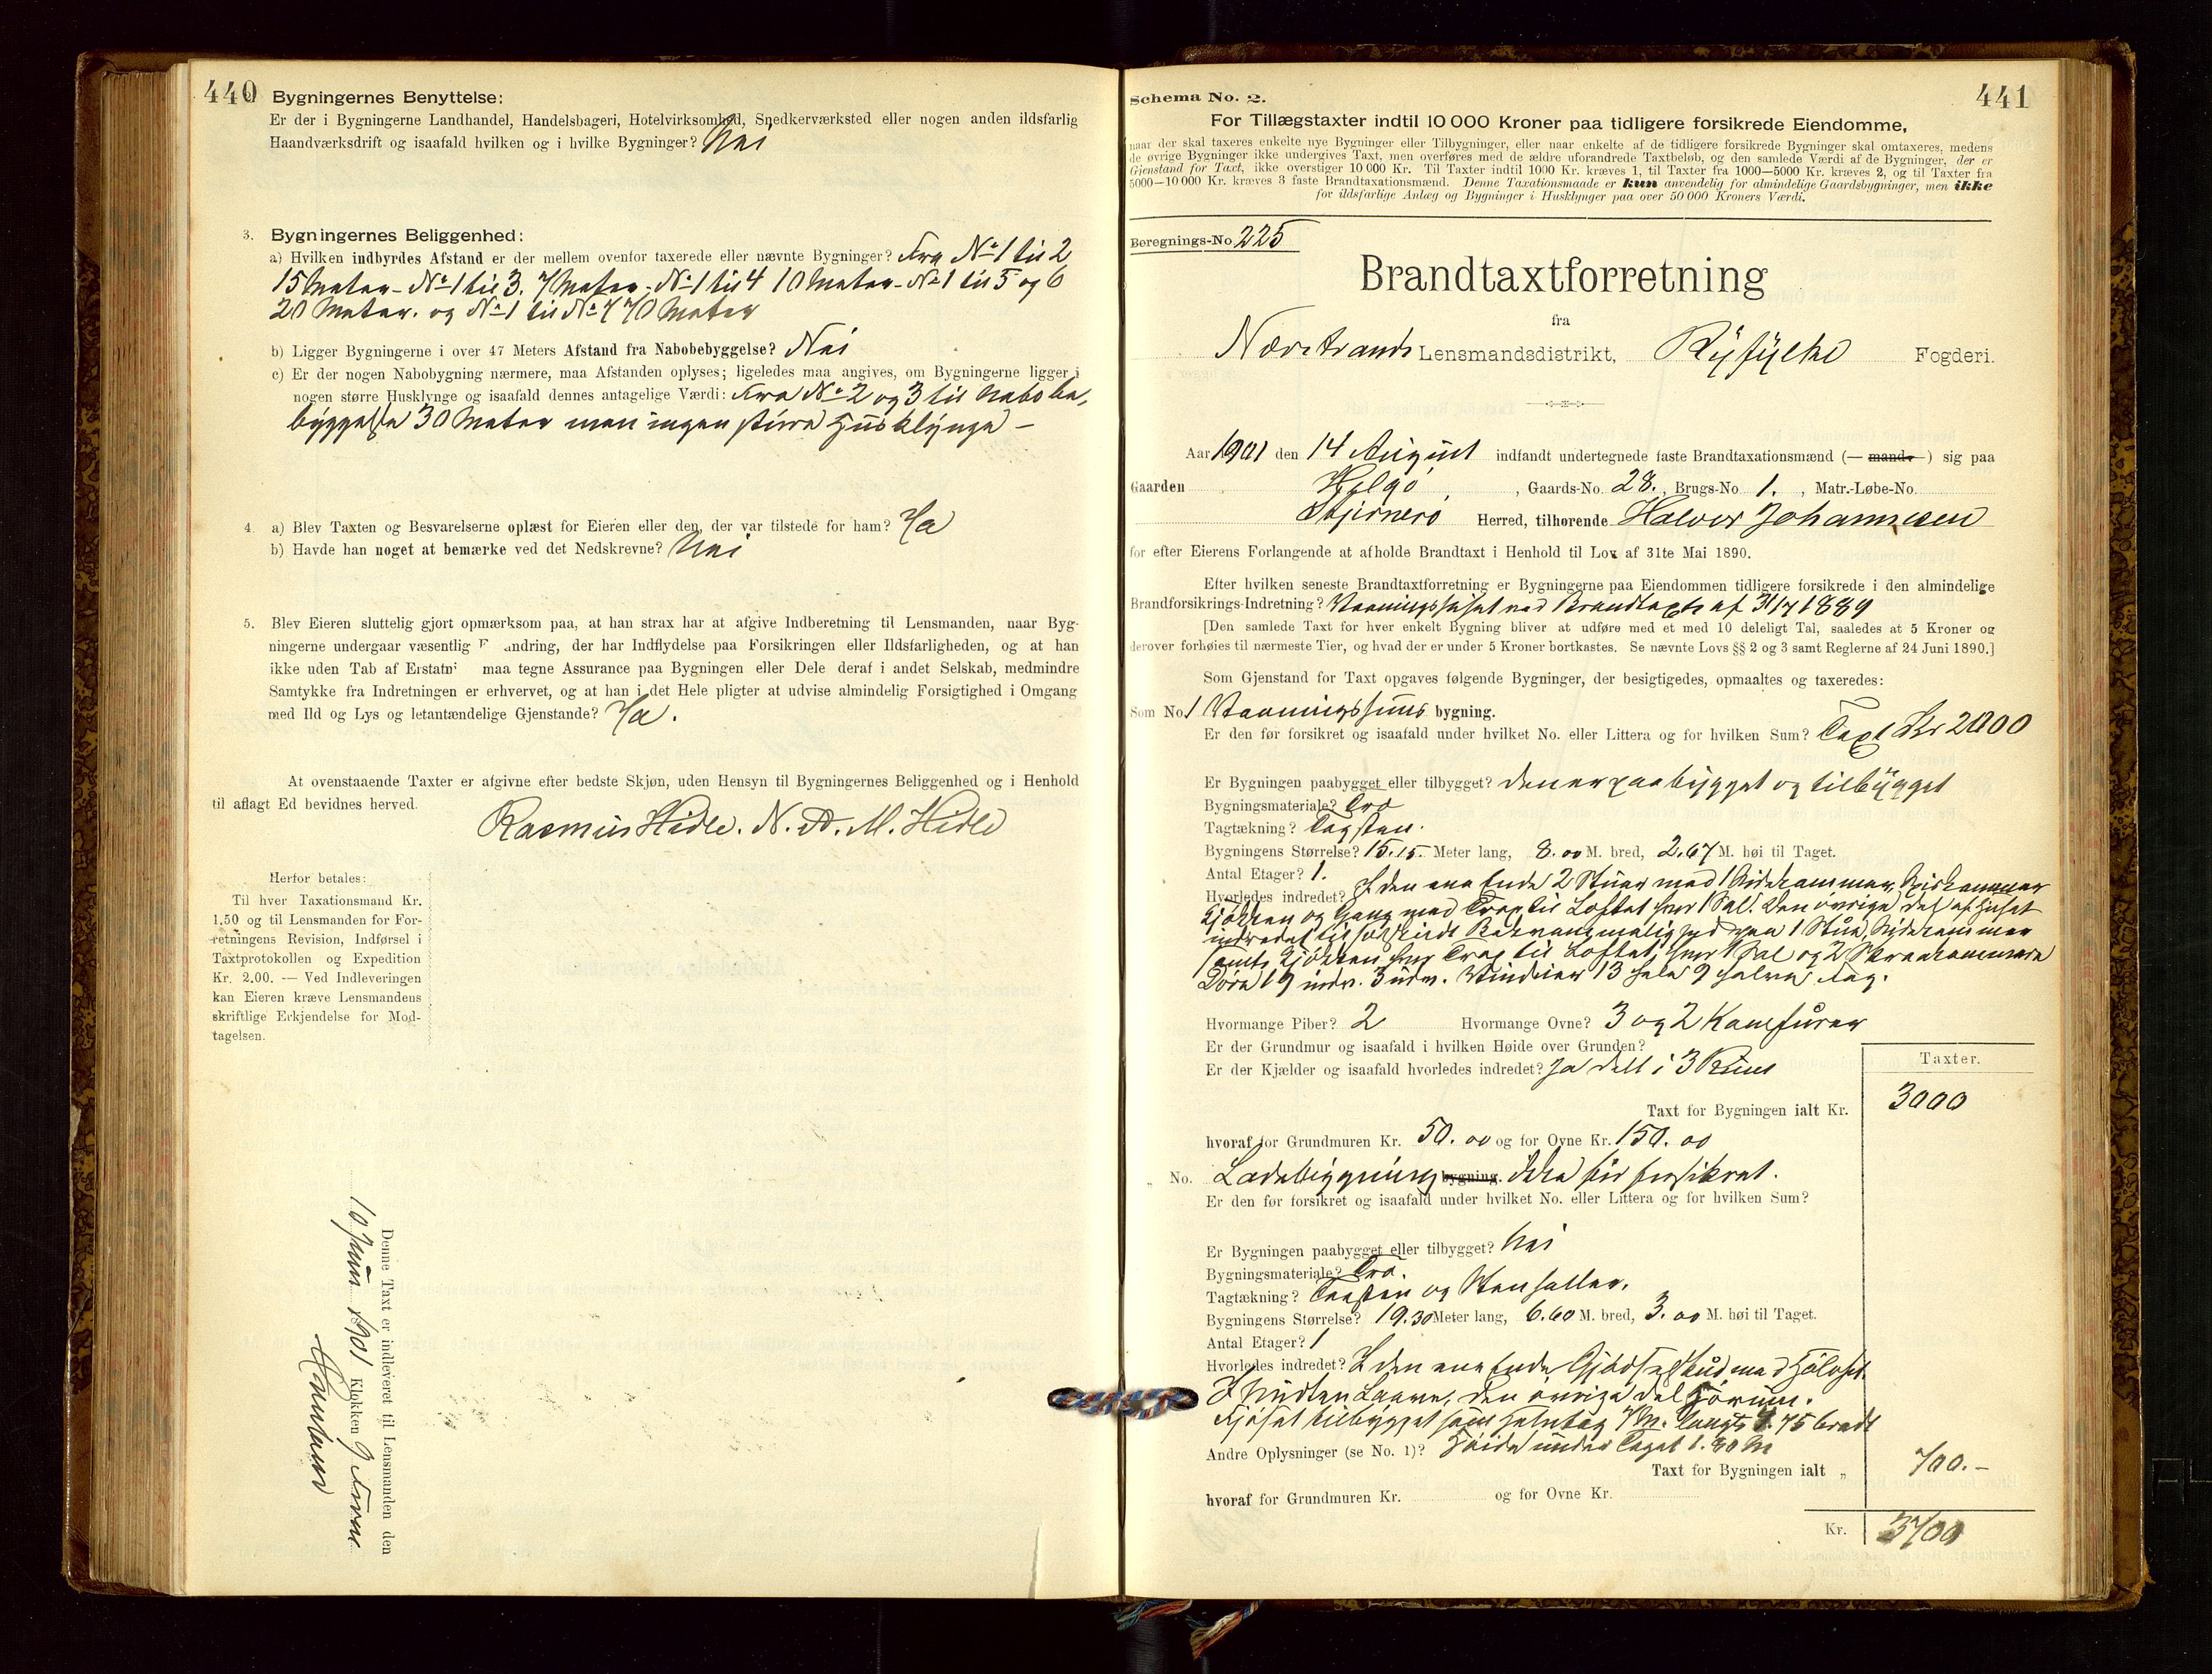 440
Bygningernes Benyttelse:
Er der i Bygningerne Landhandel, Handelsbageri, Hotelvirksomhed, Snedkerværksted eller nogen anden ildsfarlig
Haandværksdrift og isaafald hvilken og i hvilke Bygninger? Nei
3. Bygningernes Beliggenhed:
a) Hvilken indbyrdes Afstand er der mellem ovenfor taxerede eller nævnte Bygninger? Fra No 1 til 2
15 Meter - No 1 til 3. 7 Meter - No 1 til 4 10 Meter - No 1 til 5 og 6
20 Meter. og No 1 til No 7 70 Meter
b) Ligger Bygningerne i over 47 Meters Afstand fra Nabobebyggelse? Nei
c) Er der nogen Nabobygning nærmere, maa Afstanden oplyses; ligeledes maa angives, om Bygningerne ligger i
nogen større Husklynge og isaafald dennes antagelige Værdi: Fra No 2 og 3 til Nabobe-
byggelse 30 Meter men ingen større Husklynge -
4. a) Blev Taxten og Besvarelserne oplæst for Eieren eller den, der var tilstede for ham? Ja
b) Havde han noget at bemærke ved det Nedskrevne? Nei
5. Blev Eieren sluttelig gjort opmærksom paa, at han strax har at afgive Indberetning til Lensmanden, naar Byg-
ningerne undergaar væsentlig F andring, der har Indflydelse paa Forsikringen eller Ildsfarligheden, og at han
ikke uden Tab af Erstatn maa tegne Assurance paa Bygningen eller Dele deraf i andet Selskab, medmindre
Samtykke fra Indretningen er erhvervet, og at han i det Hele pligter at udvise almindelig Forsigtighed i Omgang
med Ild og Lys og letantændelige Gjenstande? Ja.
At ovenstaaende Taxter er afgivne efter bedste Skjøn, uden Hensyn til Bygningernes Beliggenhed og i Henhold
til aflagt Ed bevidnes herved.
Rasmus Hidle. N. A. M. Hidle
Herfor betales:
Til hver Taxationsmand Kr.
1,50 og til Lensmanden for For-
retningens Revision, Indførsel i
Taxtprotokollen og Expedition
Kr. 2.00. — Ved Indleveringen
kan Eieren kræve Lensmandens
skriftlige Erkjendelse for Mod-
tagelsen.
Denne Taxt er indleveret til Lensmanden den
10 Juni 1901 Klokken 9 Form
441
Schema No. 2.
For Tillægstaxter indtil 10 000 Kroner paa tidligere forsikrede Eiendomme,
naar der skal taxeres enkelte nye Bygninger eller Tilbygninger, eller naar enkelte af de tidligere forsikrede Bygninger skal omtaxeres, medens
de øvrige Bygninger ikke undergives Taxt, men overføres med de ældre uforandrede Taxtbeløb, og den samlede Værdi af de Bygninger, der er
Gjenstand for Taxt, ikke overstiger 10 000 Kr. Til Taxter indtil 1000 Kr. kræves 1, til Taxter fra 1000—5000 Kr. kræves 2, og til Taxter fra
5000—10 000 Kr. kræves 3 faste Brandtaxationsmænd. Denne Taxationsmaade er kun anvendelig for almindelige Gaardsbygninger, men ikke
for ildsfarlige Anlæg og Bygninger i Husklynger paa over 50 000 Kroners Værdi.
Beregnings-No 225
Brandtaxtforretning
fra
Nærstrands Lensmandsdistrikt, Ryfylke Fogderi.
Aar 1901 den 14 August indfandt undertegnede faste Brandtaxationsmænd (— mand. —) sig paa
Gaarden Helgø, Gaards-No. 28., Brugs-No 1., Matr.-Løbe-No.
Stjernerø Herred, tilhørende Halvor Johannesen
for efter Eierens Forlangende at afholde Brandtaxt i Henhold til Lov af 31te Mai 1890.
Efter hvilken seneste Brandtaxtforretning er Bygningerne paa Eiendommen tidligere forsikrede i den almindelige
Brandforsikrings-Indretning? Vaaningshuset ved Brandtaxt af 31/7 1889
[Den samlede Taxt for hver enkelt Bygning bliver at udføre med et med 10 deleligt Tal, saaledes at 5 Kroner og
derover forhøies til nærmeste Tier, og hvad der er under 5 Kroner bortkastes. Se nævnte Lovs §§ 2 og 3 samt Reglerne af 24 Juni 1890.]
Som Gjenstand for Taxt opgaves følgende Bygninger, der besigtigedes, opmaaltes og taxeredes:
Som No. 1 Vaaningshuus bygning.
Er den før forsikret og isaafald under hvilket No. eller Littera og for hvilken Sum? Taxt Kr 2000
Er Bygningen paabygget eller tilbygget? den er paabygget og tilbygget
Bygningsmateriale? Træ
Tagtækning? Tagsten.
Bygningens Størrelse? 15.15 Meter lang, 8.00 M. bred, 2.67 M. høi til Taget.
Antal Etager? 1.
Hvorledes indredet? I den ene Ende 2 Stuer med 1 Sidekammer, Spiskammer
Kjøkken og Gang med Trap til Loftet hvor 1 Sal. Den øvrige Del af Huset
indredet til paa 1 Stue, Sidekammer
samt Kjøkken hvor Trap til Loftet, hvor 1 Sal og 2
Døre 19 indv. 3 udv. Vinduer 13 hele 9 halve fag.
Hvormange Piber? 2 Hvormange Ovne? 3 og 2 Komfurer
Er der Grundmur og isaafald i hvilken Høide over Grunden?
Er der Kjælder og isaafald hvorledes indredet? Ja delt i 3 Rum
Taxter.
Taxt for Bygningen ialt Kr. 3000
hvoraf for Grundmuren Kr. 50.00 og for Ovne Kr. 150.00
„ No. Ladebygning bygning. ikke før forsikret.
Er den før forsikret og isaafald under hvilket No. eller Littera og for hvilken Sum?
Er Bygningen paabygget eller tilbygget? Nei
Bygningsmateriale? Træ.
Tagtækning? Tagsten og Stenheller.
Bygningens Størrelse? 19.30 Meter lang, 6.60 M. bred, 3.00 M. høi til Taget.
Antal Etager? 1
Hvorledes indredet? I den ene Ende Gjødselskud med Høloft.
I Midten Laave, den øvrige del Hørum.
Fjøset tilbygget som Halvtag 7 M. langt .75 bredt
Andre Oplysninger (se No. 1)? Høide under Taget 1.80 M
Taxt for Bygningen ialt „ 700.-
hvoraf for Grundmuren Kr. og for Ovne Kr.
Kr. 3700